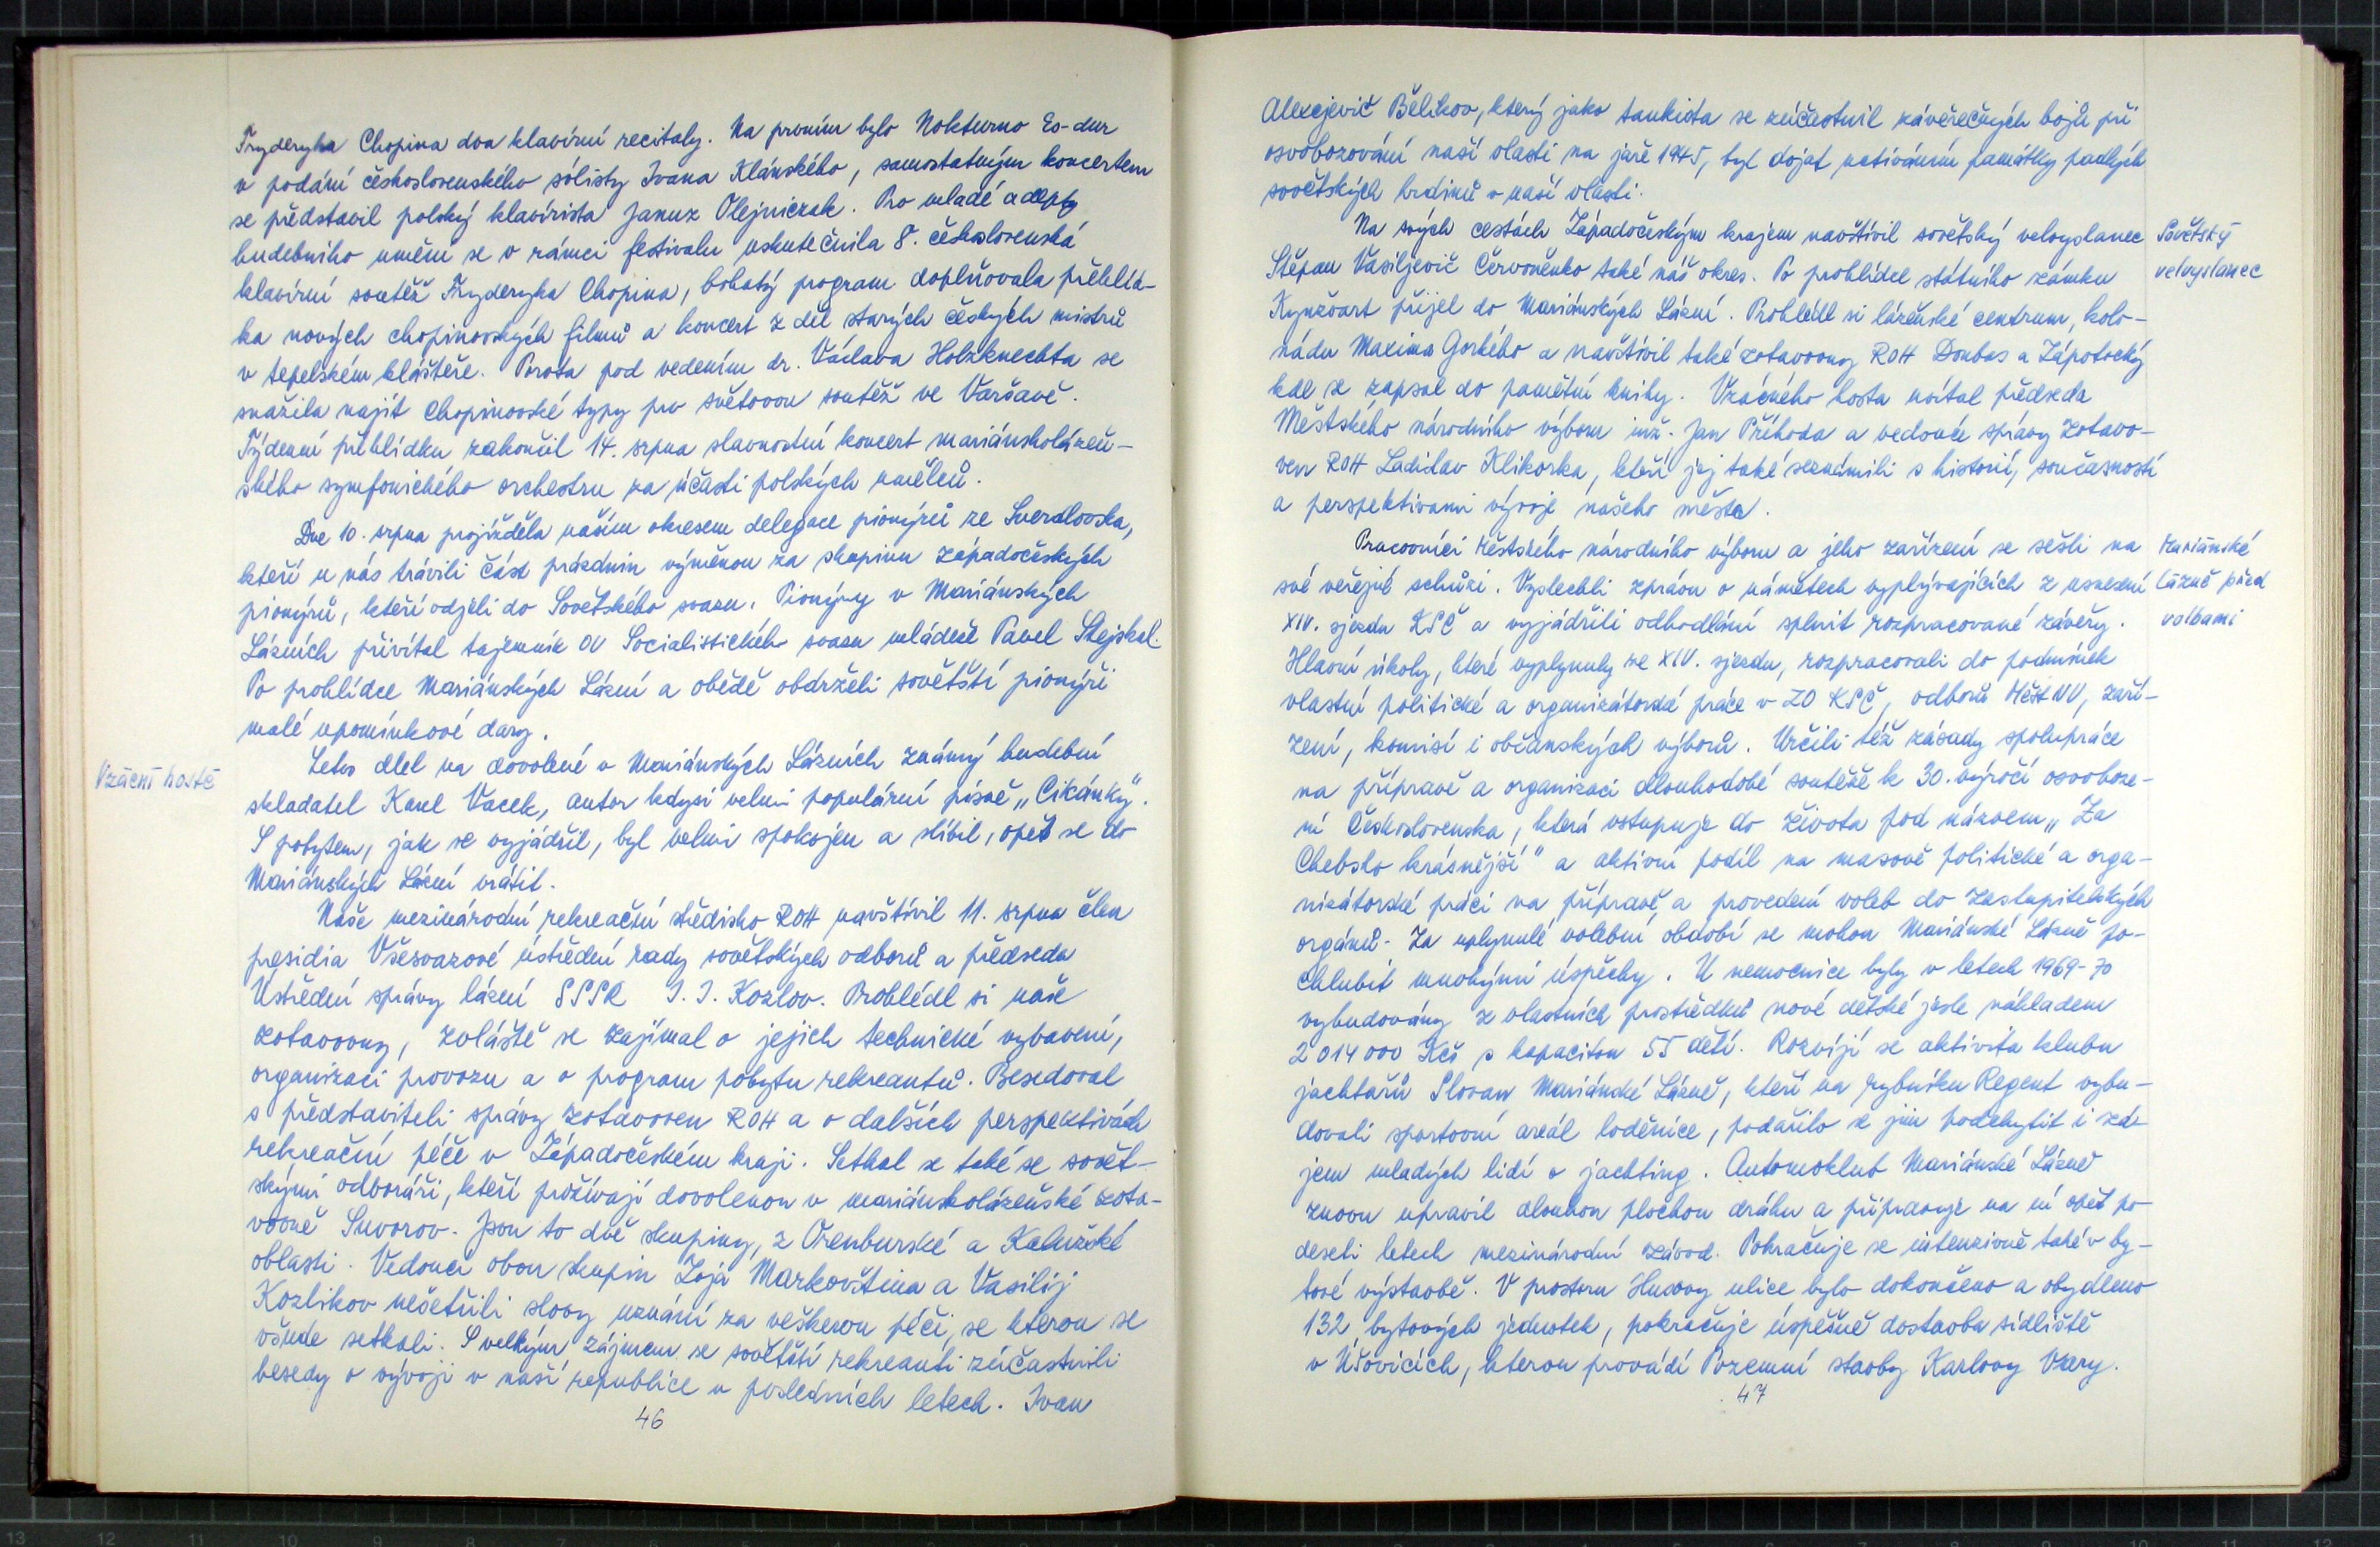 Fryderyka Chopina dva klavírní recitaly. Na prvním bylo Nokturno Es-dur
v podání československého sólisty Ivana Klánského, samostatným koncertem
se představil polský klavírista Januz Olejniczak. Pro mladé adepty
hudebního umění se v rámci festivalu uskutečnila 8. československá
klavírní soutěž Fryderyka Chopina, bohatý program doplňovala přehlíd-
ka nových chopinovských filmů a koncert z děl starých českých mistrů
v tepelském klášteře. Porota pod vedením dr. Václava Holzknechta se
snažila najít chopinovské typy pro světovou soutěž ve Varšavě.
Týdenní přehlídku zakončil 14. srpna slavnostní koncert mariánskolázeň-
ského symfonického orchestru za účasti polských umělců.
Dne 10. srpna projížděla naším okresem delegace pionýrů ze Sverdlovska,
kteří u nás trávili část prázdnin výměnou za skupinu západočeských
pionýrů, kteří odjeli do Sovětského svazu. Pionýry v Mariánských
Lázních přivítal tajemník OV Socialistického svazu mládeže Pavel Stejskal.
Po prohlídce Mariánských Lázní a obědě obdrželi sovětští pionýři
malé upomínkové dary.
Vzácní hosté
Letos dlel na dovolené v Mariánských Lázních známý hudební
skladatel Karel Vacek, autor kdysi velmi populární písně „Cikánky".
S pobytem, jak se vyjádřil, byl velmi spokojen a slíbil, opět se do
Mariánských Lázní vrátit.
Naše mezinárodní rekreační středisko ROH navštívil 11. srpna člen
presidia Všesvazové ústřední rady sovětských odborů a předseda
Ústřední správy lázní SSSR I. I. Kozlov. Prohlédl si naše
zotavovny, zvláště se zajímal o jejich technické vybavení,
organizaci provozu a o program pobytu rekreantů. Besedoval
s představiteli správy zotavoven ROH a o dalších perspektivách
rekreační péče v Západočeském kraji. Setkal se také se sovět-
skými odboráři, kteří prožívají dovolenou v mariánskolázeňské zota-
vovně Suvorov. Jsou to dvě skupiny, z Orenburské a Kalužské
oblasti. Vedoucí obou skupin Zoja Markovština a Vasilij
Kozlikov nešetřili slovy uznání za veškerou péči, se kterou se
všude setkali. S velkým zájmem se sovětští rekreanti zúčastnili
besedy o vývoji v naší republice v posledních letech. Ivan
46
Alexejevič Bělikov, který jako tankista se zúčastnil závěrečných bojů při
osvobozování naší vlasti na jaře 1945, byl dojat uctíváním památky padlých
sovětských hrdinů v naší vlasti.
Na svých cestách Západočeským krajem navštívil sovětský velvyslanec
Sovětský
Štěpan Vasiljevič Červoněnko také náš okres. Po prohlídce státního zámku
velvyslanec
Kynžvart přijel do Mariánských Lázní. Prohlédl si lázeňské centrum, kolo-
nádu Maxima Gorkého a navštívil také zotavovny ROH Donbas a Zápotocký
kde se zapsal do pamětní knihy. Vzácného hosta uvítal předseda
Městského národního výboru inž. Jan Příhoda a vedoucí správy zotavo-
ven ROH Ladislav Klikorka, kteří jej také seznámili s historií, současností
a perspektivami vývoje našeho města.
Pracovníci Městského národního výboru a jeho zařízení se sešli na
Mariánské
své veřejné schůzi. Vyslechli zprávu o námětech vyplývajících z usnesení
Lázně před
XIV. sjezdu KSČ a vyjádřili odhodlání splnit rozpracované závěry.
volbami
Hlavní úkoly, které vyplynuly ze XIV. sjezdu, rozpracovali do podmínek
vlastní politické a organizátorské práce v ZO KSČ, odborů MěstNV, zaří-
zení, komisí i občanských výborů. Určili též zásady spolupráce
na přípravě a organizaci dlouhodobé soutěže k 30. výročí osvoboze-
ní Československa, která vstupuje do života pod názvem „Za
Chebsko krásnější" a aktivní podíl na masově politické a orga-
nizátorské práci na přípravě a provedení voleb do zastupitelských
orgánů. Za uplynulé volební období se mohou Mariánské Lázně po-
chlubit mnohými úspěchy. U nemocnice byly v letech 1969-70
vybudovány z vlastních prostředků nové dětské jesle nákladem
2 014 000 Kčs s kapacitou 55 dětí. Rozvíjí se aktivita klubu
jachtařů Slovan Mariánské Lázně, kteří na rybníku Regent vybu-
dovali sportovní areál loděnice, podařilo se jim podchytit i zá-
jem mladých lidí o jachting. Automotoklub Mariánské Lázně
znovu upravil dlouhou plochou dráhu a připravuje na ní opět po
deseti letech mezinárodní závod. Pokračuje se intenzivně také v by-
tové výstavbě. V prostoru Husovy ulice bylo dokončeno a obydleno
132 bytových jednotek, pokračuje úspěšně dostavba sídliště
v Úšovicích, kterou provádí Pozemní stavby Karlovy Vary.
47